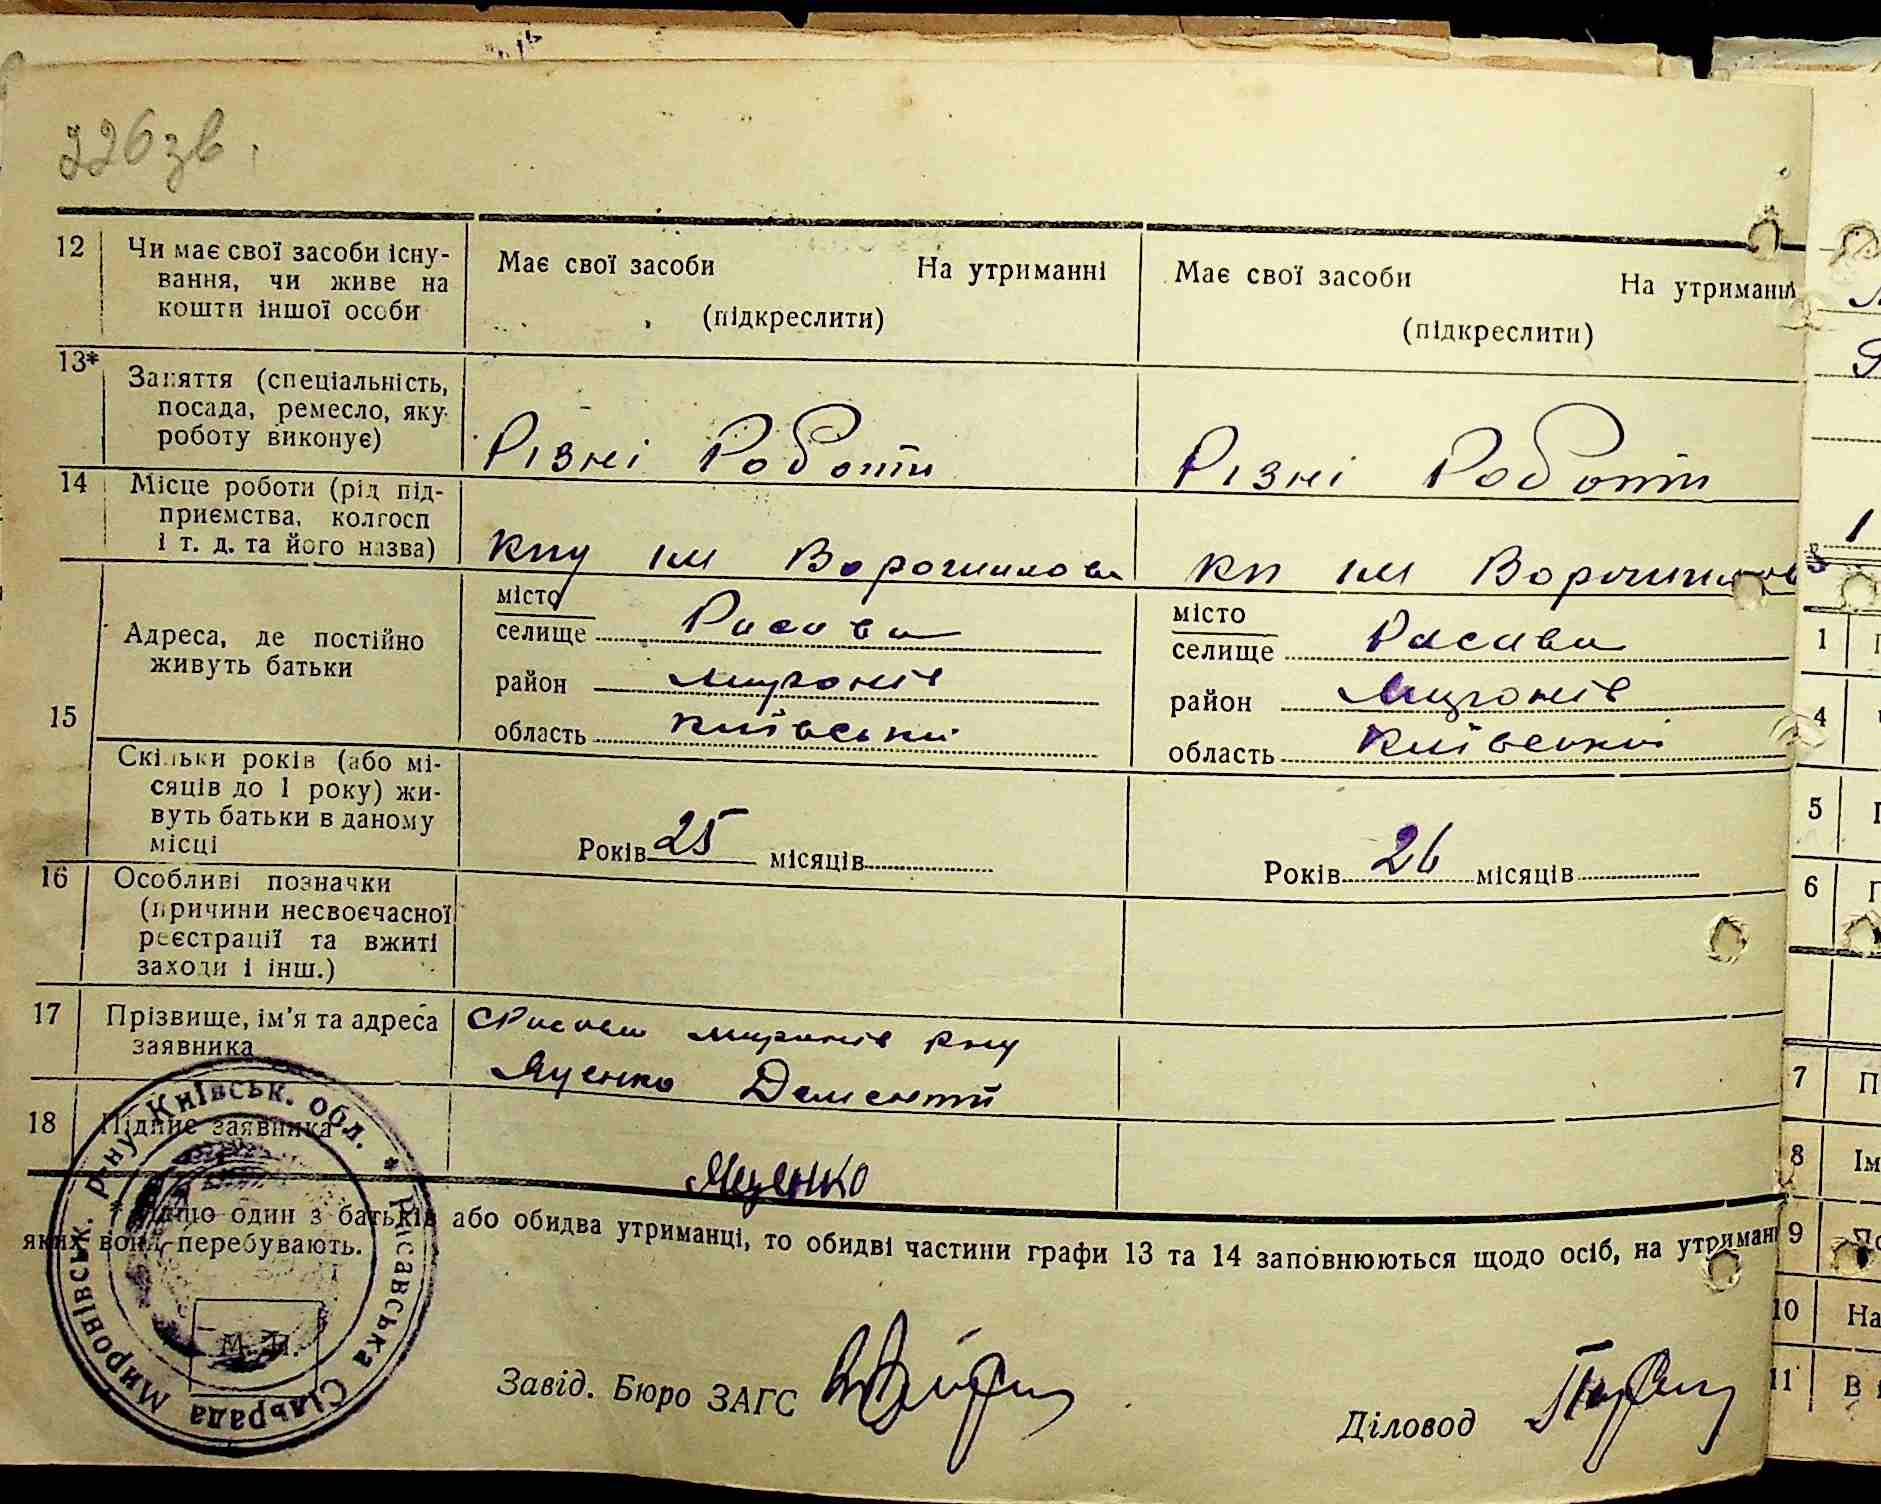 226 зв.
12 Чи має свої засоби існу-
вання, чи живе на
кошти іншої особи
Має свої засоби На утриманні
(підкреслити)
Має свої засоби На утриманні
(підкреслити)
13* Заняття (спеціальність,
посада, ремесло, яку
роботу виконує)
Різні Роботи
Різні Роботи
14 Місце роботи (рід під-
приємства, колгосп
і т. д. та його назва)
ім Ворошилова
ім Ворошилова
15 Адреса, де постійно
живуть батьки
місто
селище Расава
район Миронів
область Київській
місто
селище Расава
район Миронів
область Київській
Скільки років (або мі-
сяців до 1 року) жи-
вуть батьки в даному
місці
Років 25 місяців
Років 26 місяців
16 Особливі позначки
(причини несвоєчасної
реєстрації та вжиті
заходи і інш.)
17 Прізвище, ім'я та адреса
заявника
с Расава Миронів р-ну
Яценко Дементій
18 Підпис заявника
Яценко
Якщо один з батьків або обидва утриманці, то обидві частини графи 13 та 14 заповнюються щодо осіб, на утриман
яких вони перебувають.
Расавська Сільрада Миронівськ. р-ну Київськ. обл. *
М. П.
Завід. Бюро ЗАГС
Діловод
1
1
4
5
6
7 П
8 Ім
9 По
10 На
11 В